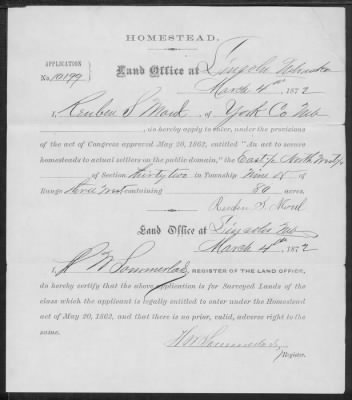 HOMESTEAD.
APPLICATION
No. 10199
Land Office at Lincoln Nebraska
March 4th 1872
I, Reuben S. Ward, of York Co Neb
, do hereby apply to enter, under the provisions
of the act of Congress approved May 20, 1862, entitled "An act to secure
homesteads to actual settlers on the public domain," the East ½ North West ¼
of Section thirty two in Township Nine N of
Range three West containing 80 acres.
Reuben S. Ward
Land Office at Lincoln Neb
March 4th 1872
I, REGISTER OF THE LAND OFFICE,
do hereby certify that the above application is for Surveyed Lands of the
class which the applicant is legally entitled to enter under the Homestead
act of May 20, 1862, and that there is no prior, valid, adverse right to the
same.
Register.